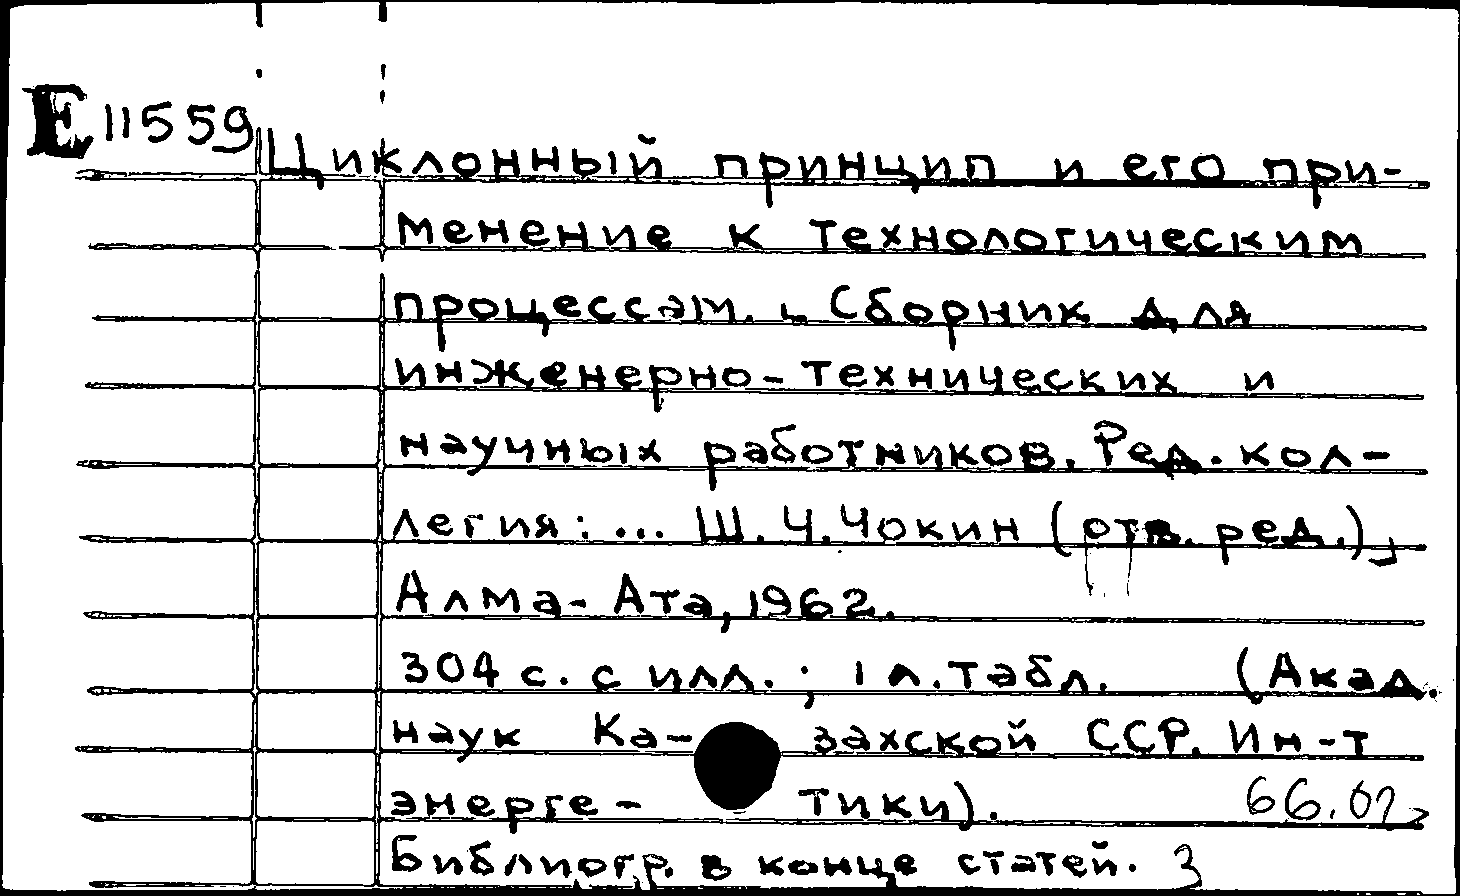 E 11559
Циклонный принцип и его при-
менение к технологическим
процессам. Сборник для
инженерно-технических и
научных работников. Ред. кол-
легия: ... Ш. Ч. Чокин (отв. ред.)
Алма-Ата, 1962.
304 с. с илл.; 1 л. табл. (Акад.
наук Ка- захской ССР. Ин-т
энерге- тики).
66.02
Библиогр. в конце статей. 3